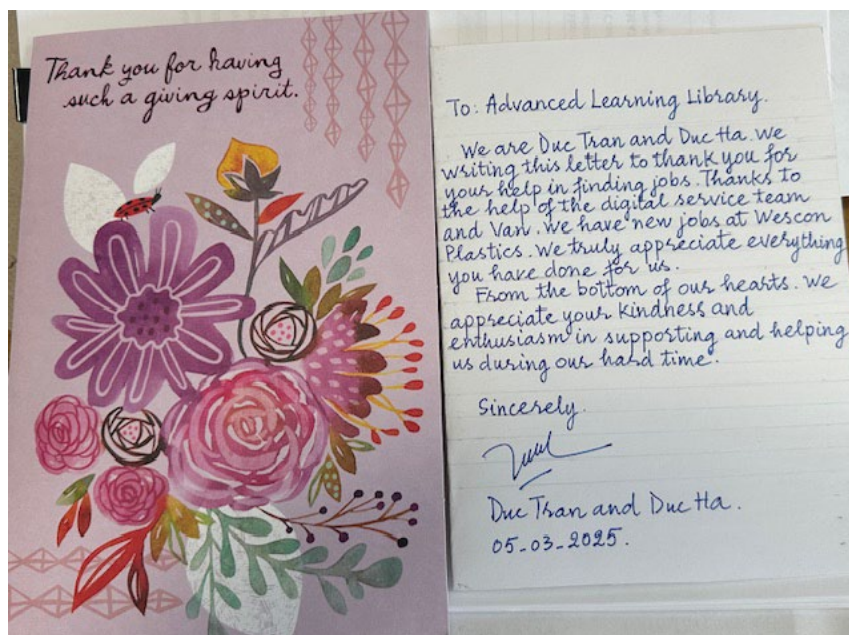 Thank you for having
such a giving spirit.
To: Advanced Learning Library.
We are Duc Tran and Duc Ha. We
writing this letter to thank you for
your help in finding jobs. Thanks to
the help of the digital service team
and Van. We have new jobs at Wescon
Plastics. We truly appreciate everything
you have done for us.
From the bottom of our hearts. We
appreciate your kindness and
enthusiasm in supporting and helping
us during our hard time.
Sincerely.
Duc Tran and Duc Ha.
05-03-2025.